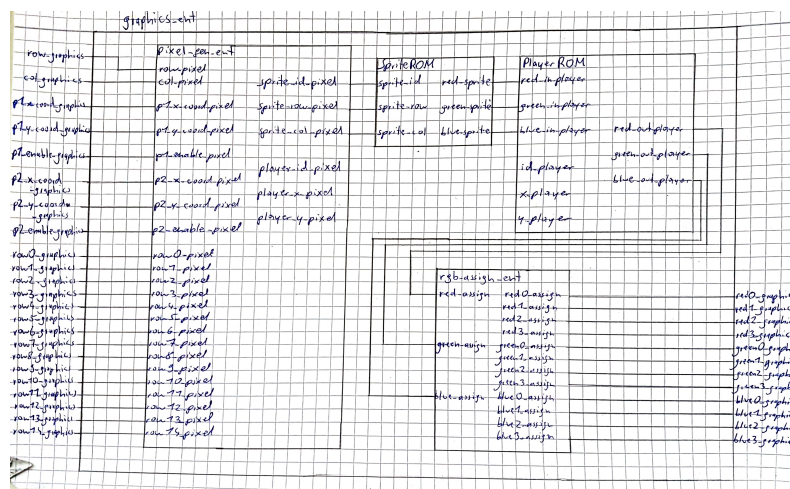 graphics_ent
row_graphics
col_graphics
p1_x_coord_graphics
p1_y_coord_graphics
p1_enable_graphics
p2_x_coord
_graphics
p2_y_coord
_graphics
p2_enable_graphics
row0_graphics
row1_graphics
row2_graphics
row3_graphics
row4_graphics
row5_graphics
row6_graphics
row7_graphics
row8_graphics
row9_graphic
row10_graphics
row11_graphics
row12_graphics
row13_graphics
row14_graphics
pixel_gen_ent
row_pixel
col_pixel
p1_x_coord_pixel
p1_y_coord_pixel
p1_enable_pixel
p2_x_coord_pixel
p2_y_coord_pixel
p2_enable_pixel
row0_pixel
row1_pixel
row2_pixel
row3_pixel
row4_pixel
row5_pixel
row6_pixel
row7_pixel
row8_pixel
row9_pixel
row10_pixel
row11_pixel
row12_pixel
row13_pixel
row14_pixel
sprite_id_pixel
sprite_row_pixel
sprite_col_pixel
player_id_pixel
player_x_pixel
player_y_pixel
SpriteROM
sprite_id red_sprite
sprite_row green_sprite
sprite_col blue_sprite
PlayerROM
red_in_player
green_in_player
blue_in_player
id_player
x_player
y_player
red_out_player
green_out_player
blue_out_player
rgb_assign_ent
red_assign
green_assign
blue_assign
red0_assign
red1_assign
red2_assign
red3_assign
green0_assign
green1_assign
green2_assign
green3_assign
blue0_assign
blue1_assign
blue2_assign
blue3_assign
red0_graphi
red1_graphic
red2_graphi
red3_graphic
green0_graph
green1_graph
green2_graph
green3_graph
blue0_graph
blue1_graph
blue2_graph
blue3_graphi